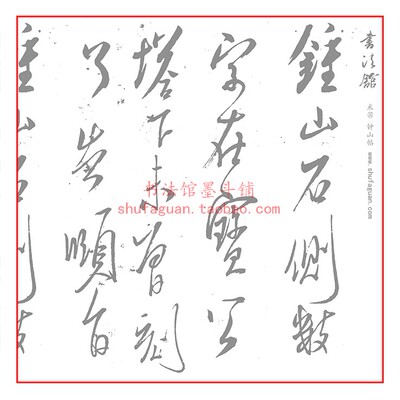 書法館
米芾 钟山帖
www.shufaguan.com
鍾山石側數
字在寶公
塔下未刻
頤自
山石側數
书法馆墨斗铺
shufaguan.taobao.com